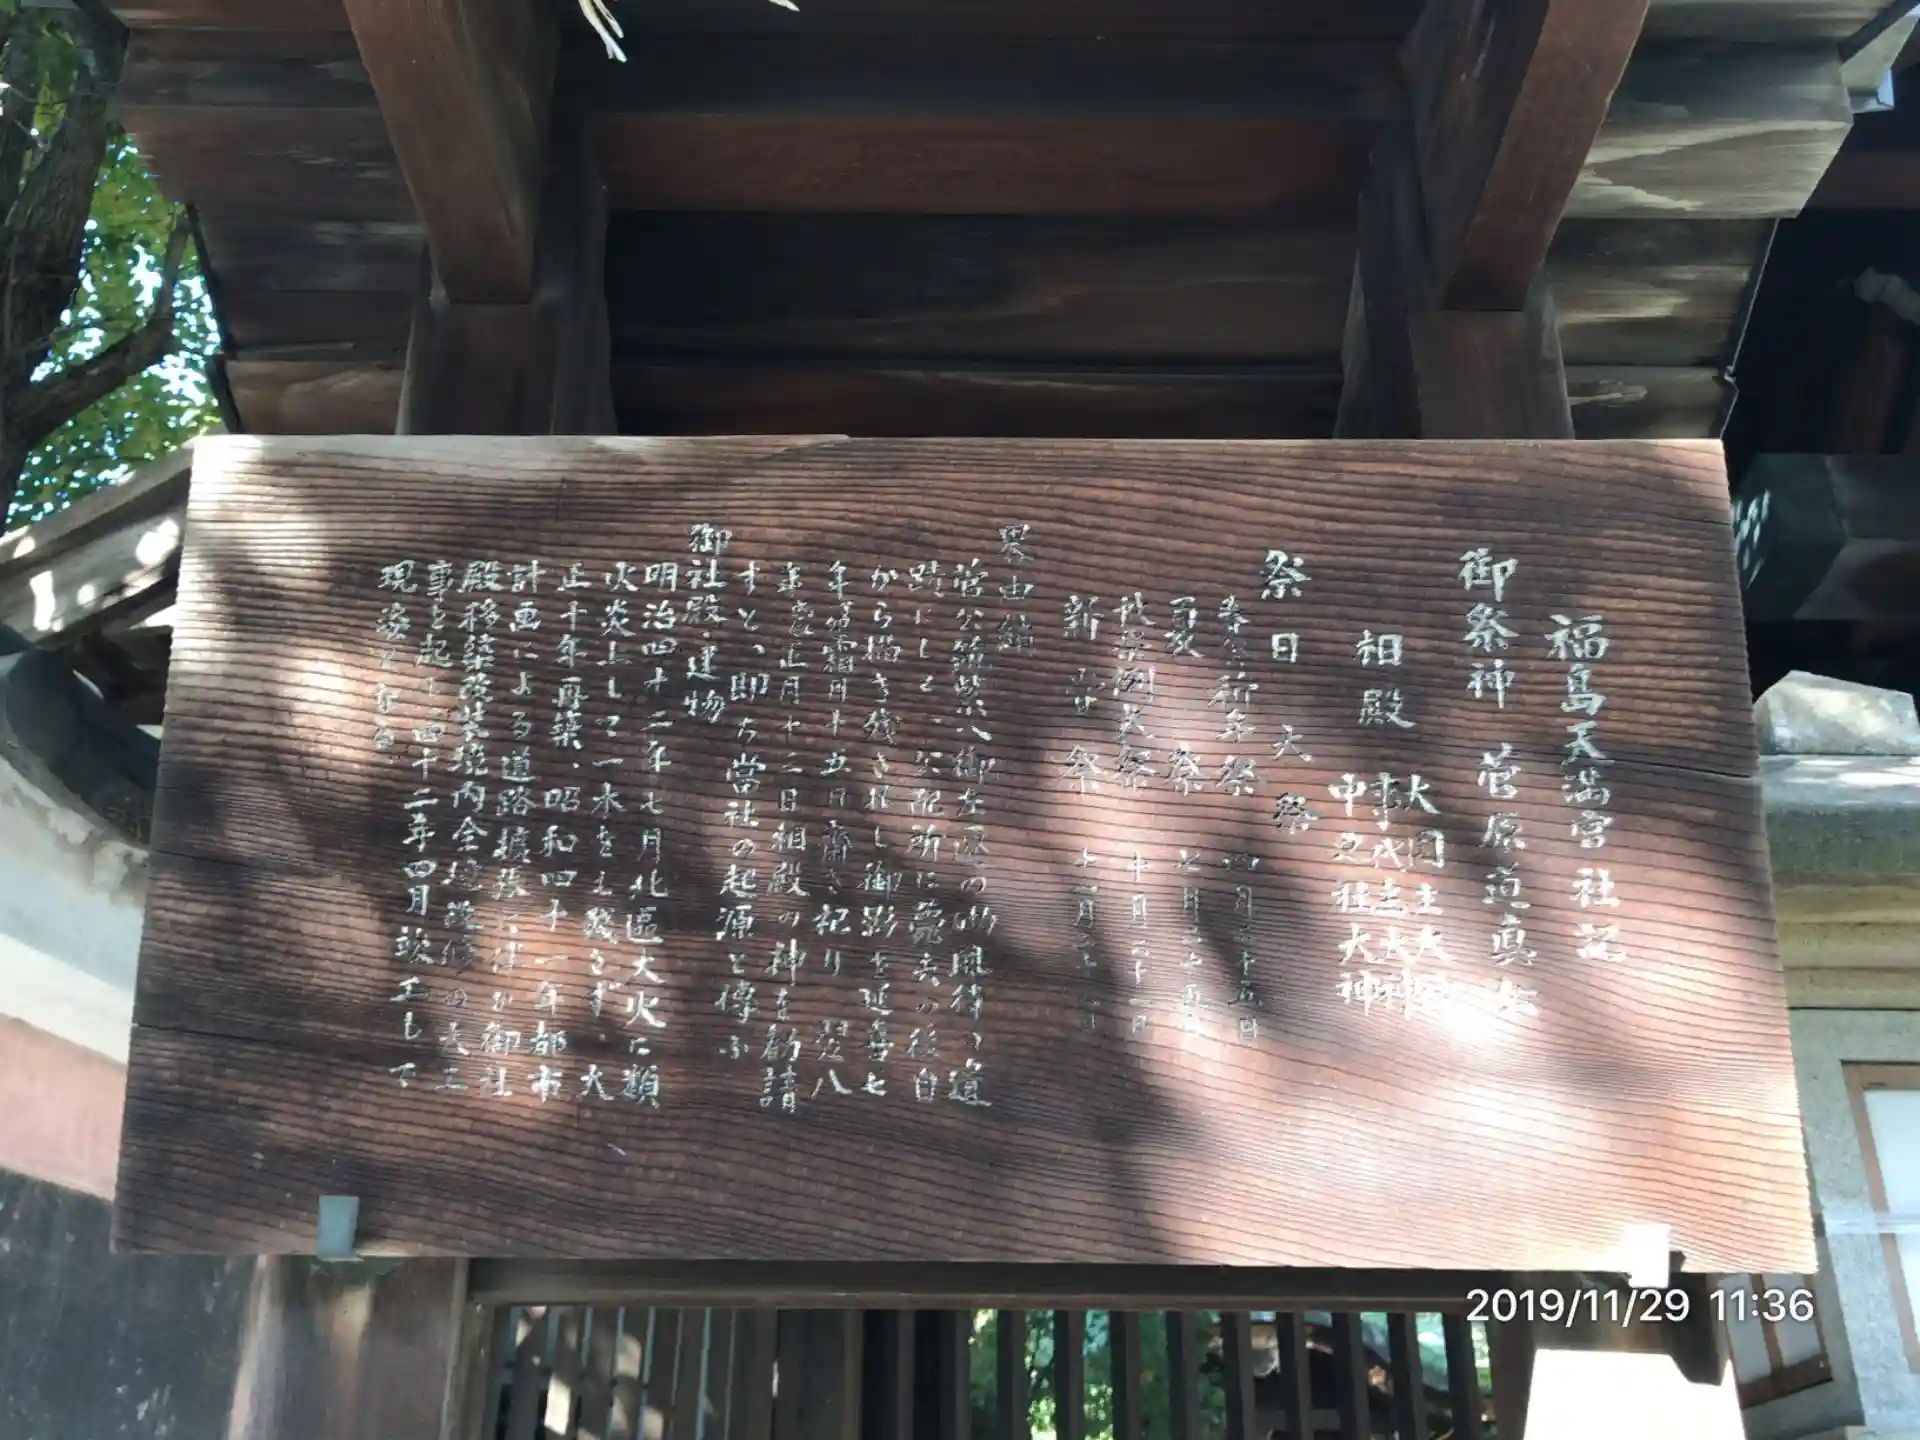 福島天満宮社記
御祭神 菅原道真公
相殿
大国主大神
事代主大神
中之社大神
祭日 大祭
祈年祭 四月二十五日
夏祭 七月二十五日
秋季例大祭 十月二十一日
新嘗祭 十一月二十三日
畧由緒
菅公筑紫へ御左遷の砌風待の道
跡にしと、公配所に薨去の後自
から描き残されし御影を延喜七
年 霜月十五日齋き祀り 翌八
年 正月十二日相殿の神を勧請
すと、即ち當社の起源と傳ふ
御社殿・建物
明治四十二年七月北區大火に類
火炎上して一木をも残さず・大
正十年再築、昭和四十一年都市
計画による道路擴張に伴ひ御社
殿移築 境内全域 の大工
事を起し四十二年四月竣工して
現姿となる。
2019/11/29 11:36